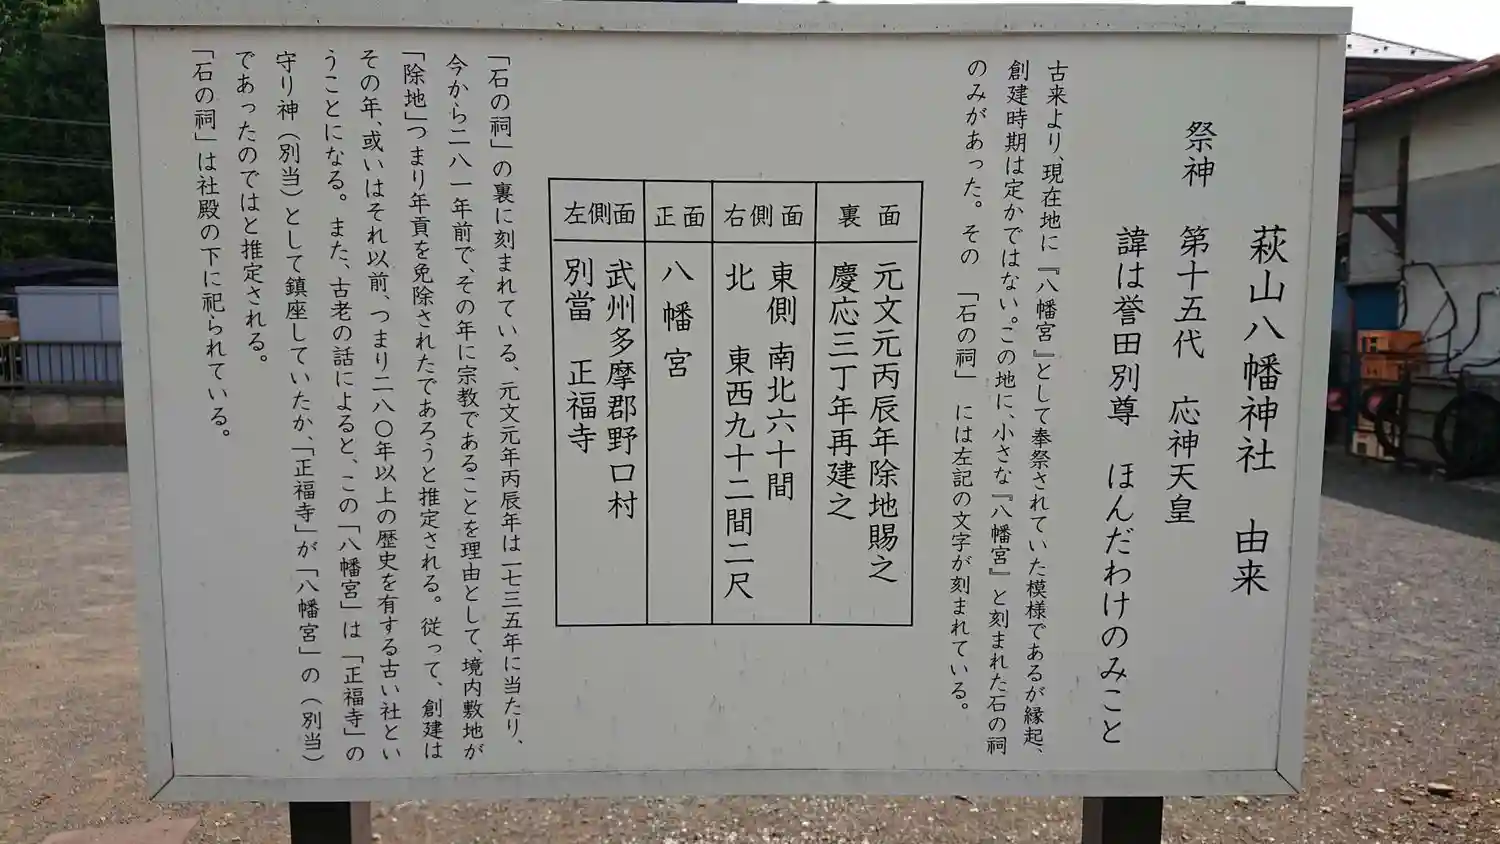 萩山八幡神社 由来
祭神 第十五代 応神天皇
諱は誉田別尊 ほんだわけのみこと
古来より、現在地に『八幡宮』として奉祭されていた模様であるが縁起、
創建時期は定かではない。この地に、小さな『八幡宮』と刻まれた石の祠
のみがあった。その「石の祠」には左記の文字が刻まれている。
裏面
元文元丙辰年除地賜之
慶応三丁年再建之
右側面
東側 南北六十間
北 東西九十二間二尺
正面
八幡宮
左側面
武州多摩郡野口村
別當 正福寺
「石の祠」の裏に刻まれている、元文元年丙辰年は一七三五年に当たり、
今から二八一年前で、その年に宗教であることを理由として、境内敷地が
「除地」つまり年貢を免除されたであろうと推定される。従って、創建は
その年、或いはそれ以前、つまり二八〇年以上の歴史を有する古い社とい
うことになる。また、古老の話によると、この「八幡宮」は「正福寺」の
守り神（別当）として鎮座していたか、「正福寺」が「八幡宮」の（別当）
であったのではと推定される。
「石の祠」は社殿の下に祀られている。